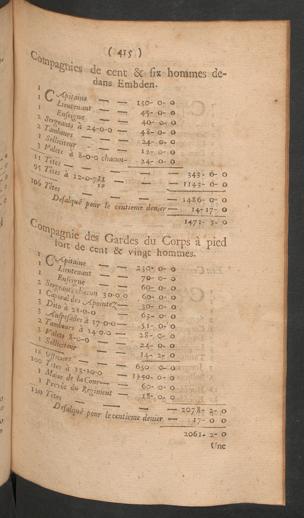 ( 415 )
Compagnies de cent & six hommes de-
dans Embden.
1 CApitaine — — 150- 0- 0
1 Lieutenant — — 45- 0- 0
1 Enseigne — — 40- 0- 0
2 Sergeants à 24-0-0 — 48- 0- 0
2 Tambours — — 24- 0- 0
1 Solliciteur — — 12- 0- 0
3 Valets à 8-0-0 chacun- 24- 0- 0
11 Têtes — — — 343- 0- 0
95 Têtes à 12-0- — — 1143- 6- 0
106 Têtes — — 1486- 0- 0
Desalqué pour le centieme denier — 14-17- 0
1471- 3- 0
Compagnie des Gardes du Corps à pied
fort de cent & vingt hommes.
1 CApitaine — — 250- 0- 0
1 Lieutenant — — 70- 0- 0
1 Enseigne — — 60- 0- 0
2 Sergeants chacun 30-0-0 60- 0- 0
1 Caporal des Apointez — 30- 0- 0
3 Dito à 21-0-0 — 63- 0- 0
3 à 17-0-0 — 51- 0- 0
2 Tambours à 14-0-0 — 28- 0- 0
3 Valets 8-0-0 — 24- 0- 0
1 Solliciteur — — 14- 2- 0
18 — — — 650- 0- 0
100 Têtes à 13-10-0 — 1350- 0- 0
1 de la Cour — — 60- 0- 0
1 du Regiment — 18- 0- 0
120 Têtes — — 2078- 2- 0
Defalqué pour le centieme denier — 17- 0- 0
2061- 2- 0
Une